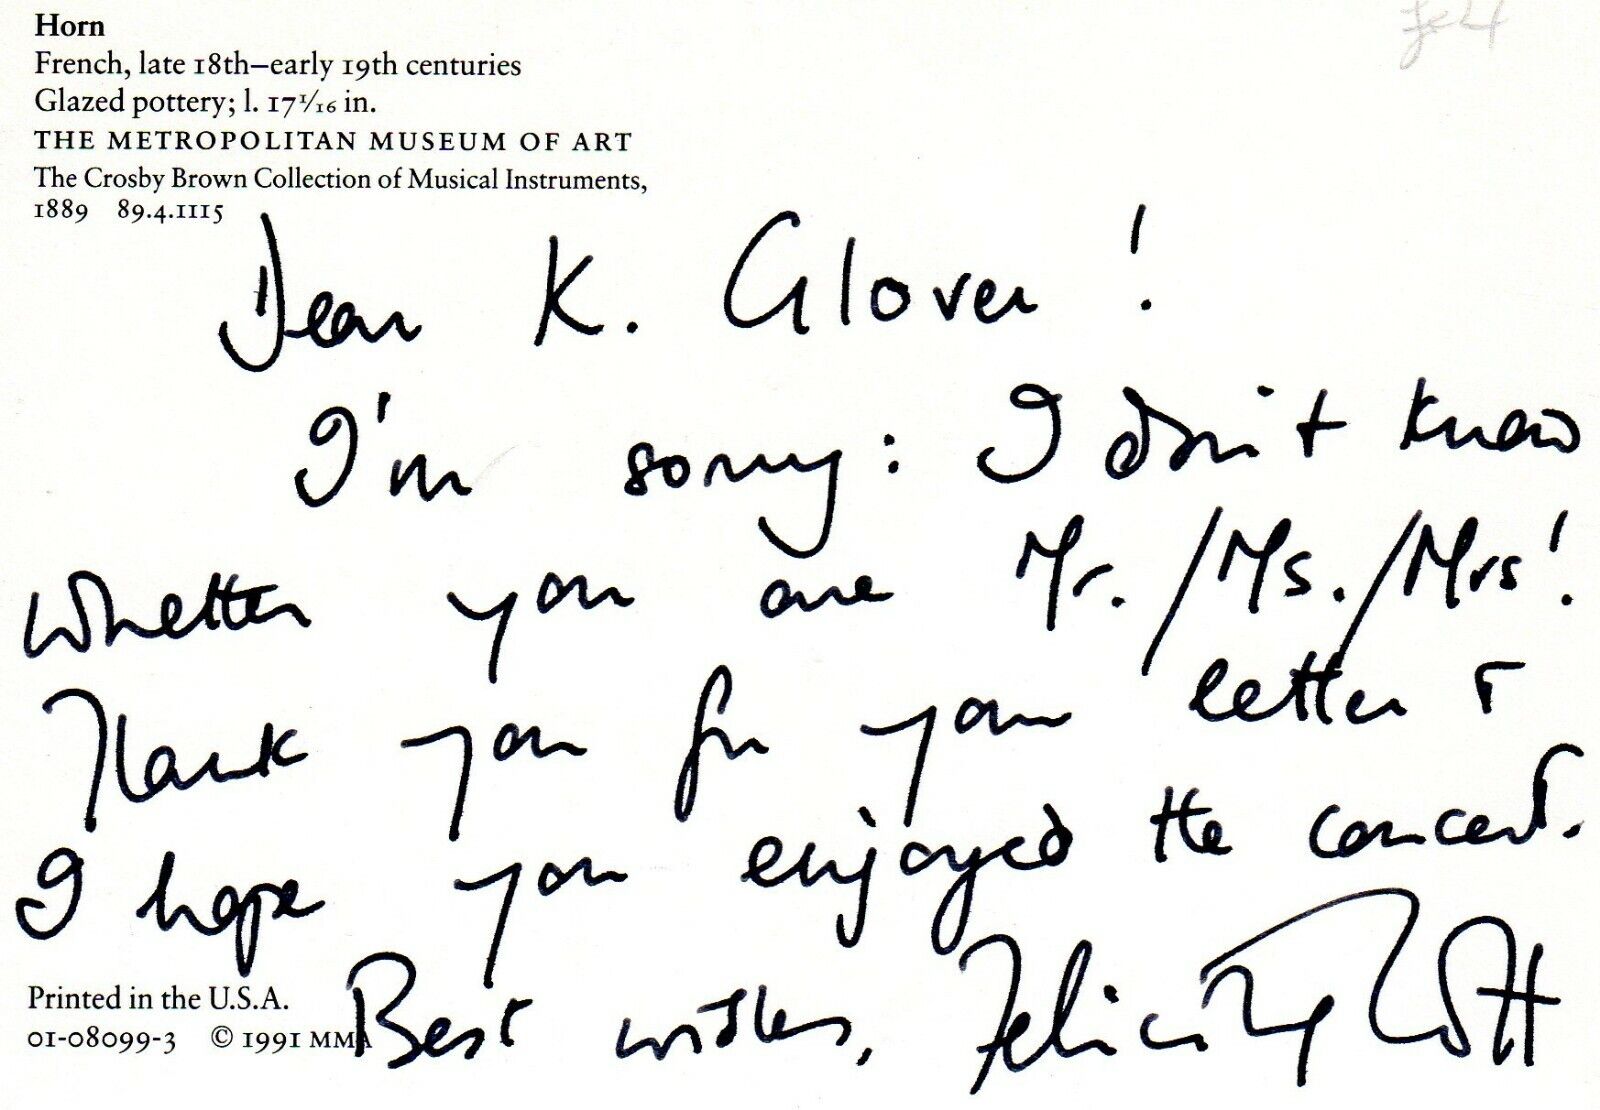 Horn
French, late 18th–early 19th centuries
Glazed pottery; l. 17 1/16 in.
THE METROPOLITAN MUSEUM OF ART
The Crosby Brown Collection of Musical Instruments,
1889 89.4.1115
Dear K. Glover!
I'm sorry: I don't know
whether you are Mr./Ms./Mrs!
Thank you for your letter &
I hope you enjoyed the concert.
Best wishes, Felicity Lott
Printed in the U.S.A.
01-08099-3 © 1991 MMA